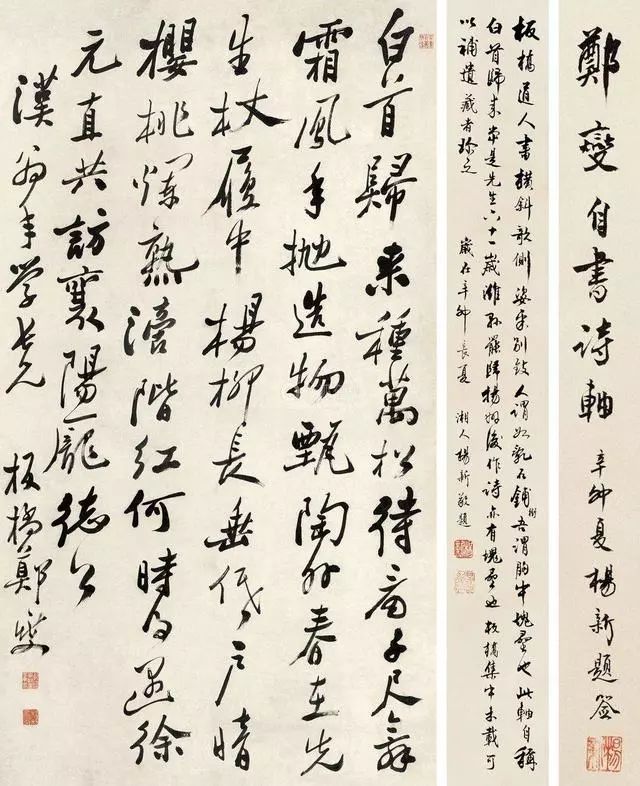 鄭燮自書詩軸 辛卯夏楊新題簽
板橋道人書橫斜欹側姿采別致人謂如亂石鋪街吾謂胸中塊壘也此軸自稱
白首歸來當是先生六十一歲濰縣罷歸揚州後作詩亦有塊壘也板橋集中未載可
以補遺藏者珍之 歲在辛卯長夏 湘人楊新敬題
白首歸来種萬松待看千尺舞
霜風年拋造物甄陶外春在先
生杖履中楊柳長垂低戶暗
櫻桃爛熟滴階紅何時得遇徐
元直共訪襄陽龐德公
漢翁年學長兄 板橋鄭燮